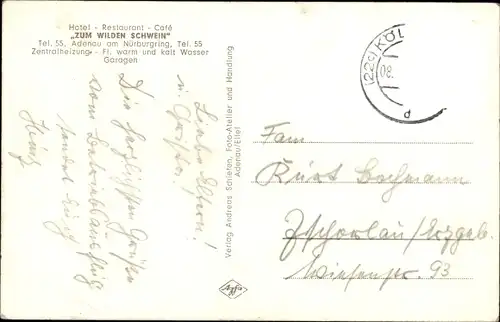 Hotel - Restaurant - Café
„ZUM WILDEN SCHWEIN"
Tel. 55, Adenau am Nürburgring, Tel. 55
Zentralheizung - Fl. warm und kalt Wasser
Garagen
Liebe Eltern!
u. Geschw.!
Die herzlichsten Grüße
vom Betriebsausflug
sendet Euch
Heinz
Verlag Andreas Schlefen, Foto-Atelier und Handlung
Adenau/Eifel
(22c) KÖL
08.
P
Fam
Kurt Bochmann
Zschorlau/Erzgeb.
Wiesenstr. 93